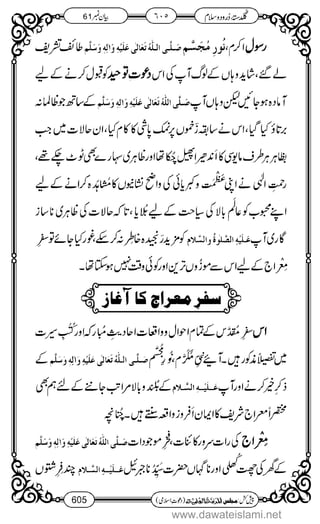 گلدستۂ درود و سلام ٦٠٥ بیان نمبر 61
رسولِ اکرم، نُورِ مُجَسَّم صَلَّی اللہُ تَعَالٰی عَلَیْہِ وَاٰلِہٖ وَسَلَّم طائف تشریف
لے گئے، شاید وہاں کے لوگ آپ کی اس دعوتِ توحید کو قبول کرنے کے لیے
آمادہ ہو جائیں لیکن وہاں آپ صَلَّی اللہُ تَعَالٰی عَلَیْہِ وَاٰلِہٖ وَسَلَّم کے ساتھ جو ظالمانہ
برتاؤ کیا گیا، اس نے سابقہ زخموں پر نمک پاشی کا کام کیا، ان حالات میں جب
بظاہر ہر طرف مایوسی کا اندھیرا پھیل چکا تھا اور ظاہری سہارے بھی ٹوٹ چکے تھے،
رحمتِ الٰہی نے اپنی عظمت و کبریائی کی واضح نشانیوں کا مُشاہَدہ کرانے کے لیے
اپنے محبوب کو عالمِ بالا کی سیاحت کے لیے بلایا، تاکہ حالات کی ظاہری ناساز
گاری آپ عَلَیْہِ الصَّلٰوۃُ وَالسَّلَام کو مزید رنجیدہ خاطر نہ کر سکے، غور کیا جائے تو سفرِ
معراج کے لیے اس سے موزوں ترین اور کوئی وقت نہیں ہو سکتا تھا۔
سفرِ معراج کا آغاز
اس سفرِ مُقدَّس کے تمام احوال و واقعات احادیثِ مبارکہ اور کُتُبِ سیرت
میں تفصیلاً مذکور ہیں۔ آیئے نُورِ مُجَسَّم صَلَّی اللہُ تَعَالٰی عَلَیْہِ وَاٰلِہٖ وَسَلَّم کے
ذکرِ خیر کرنے اور آپ عَلَیْہِ السَّلَام کے بُلند و بالا مراتب جاننے کے لئے ہم بھی
مختصراً معراج شریف کا ایمان افروز واقعہ سنتے ہیں۔ چُنانچہ
معراج کی رات سرورِ کائنات، فخرِ موجودات صَلَّی اللہُ تَعَالٰی عَلَیْہِ وَاٰلِہٖ وَسَلَّم
کے گھر کی چھت کھلی اور ناگہاں حضرت سَیِّدُنا جبرائیل عَلَیْہِ السَّلَام چند فرشتوں
605 پیش کش: مجلس المدینۃ العلمیۃ (دعوتِ اسلامی)
www.dawateislami.net